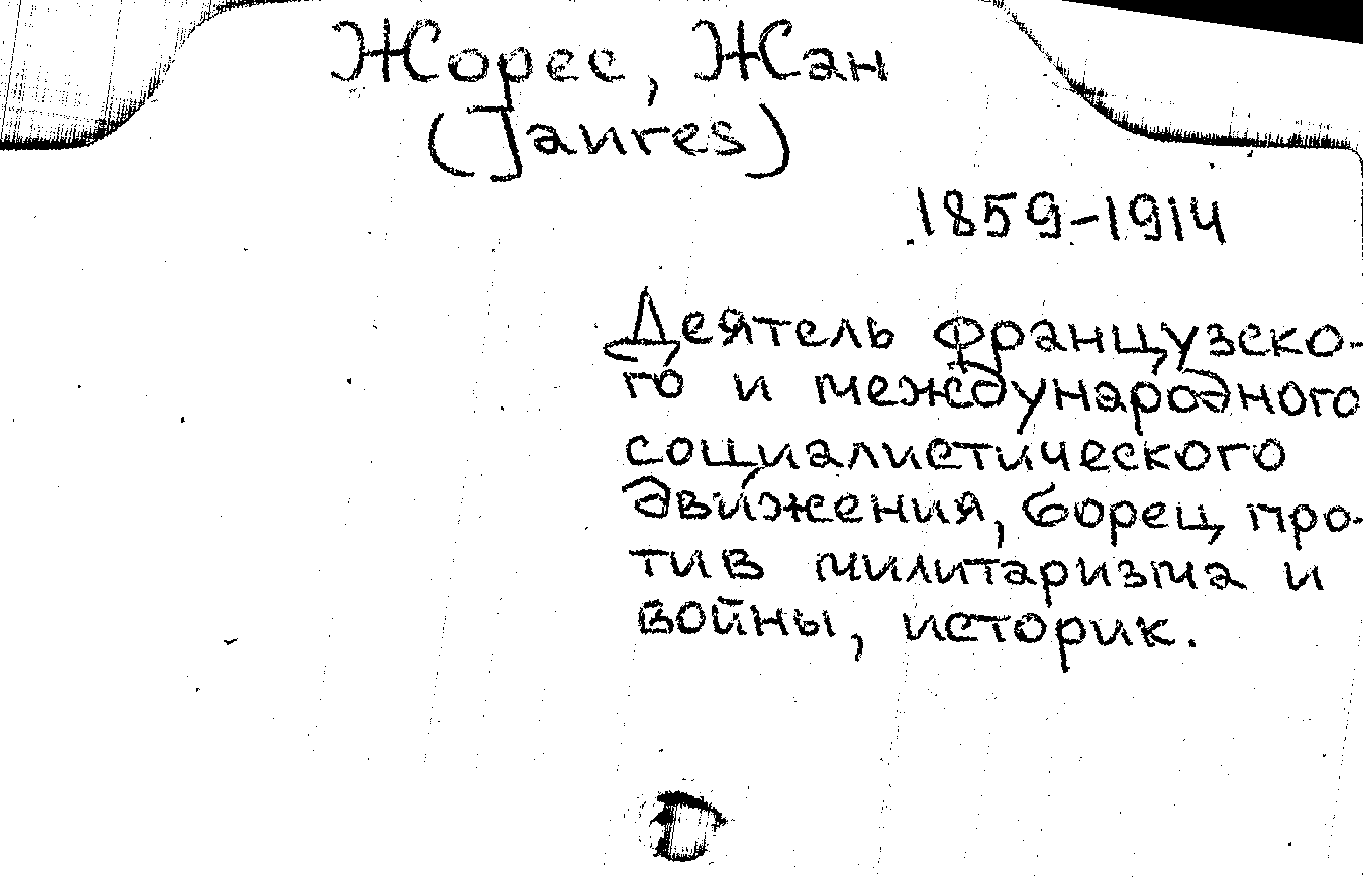 Жорес, Жан
(Jaures)
1859-1914
Деятель французско-
го и международного
социалистического
движения, борец про-
тив милитаризма и
войны, историк.